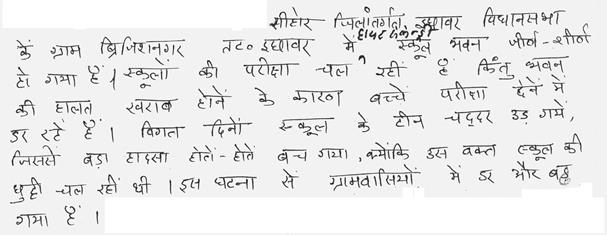 सीहोर जिलांतर्गत इछावर विधानसभा
के ग्राम ब्रिजिशनगर तह० इछावर में हायर सेकन्ड्री स्कूल भवन जीर्ण-शीर्ण
हो गया हैं। स्कूलों की परीक्षा चल रहीं हैं किंतु भवन
की हालत खराब होनें के कारण बच्चें परीक्षा देनें में
डर रहें हैं। विगत दिनों स्कूल के टीन चद्दर उड़ गयें,
जिससें बड़ा हादसा होतें-होतें बच गया, क्योंकि उस वक्त स्कूल की
छुट्टी चल रहीं थी। इस घटना सें ग्रामवासियों में डर और बढ़
गया हैं।